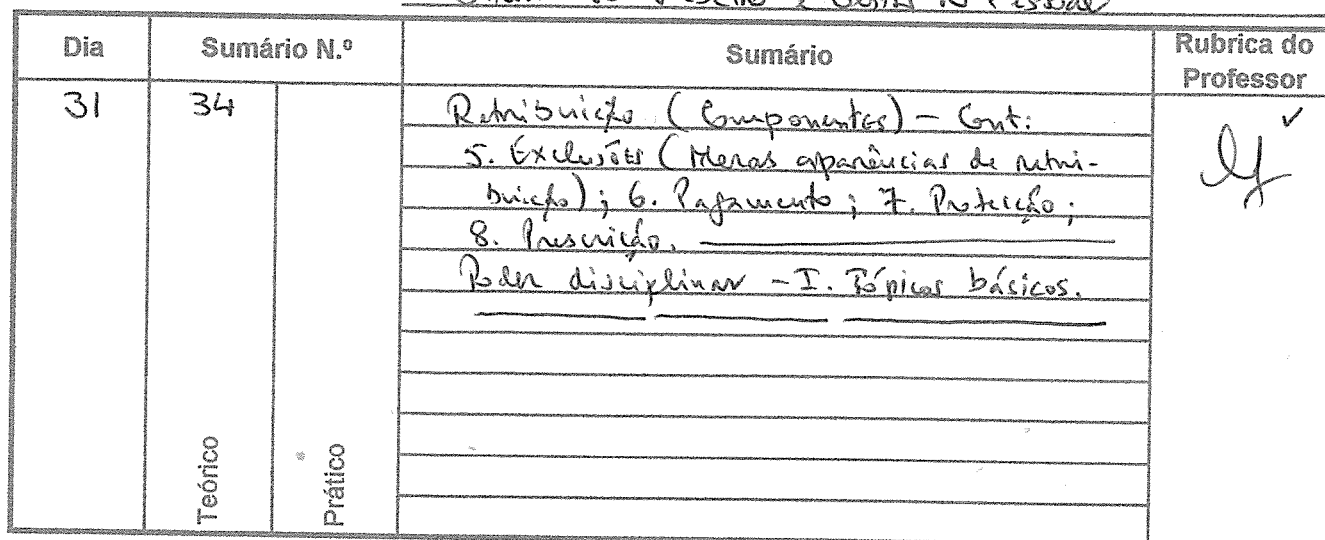 Dia Sumário N.º Sumário Rubrica do Professor
31 34 Retribuição (Componentes) – Cont:
5. Exclusões (Meras aparências de retri-
buição); 6. Pagamento; 7. Protecção;
8. Prescrição.
Poder disciplinar – I. Tópicos básicos.
Teórico
Prático